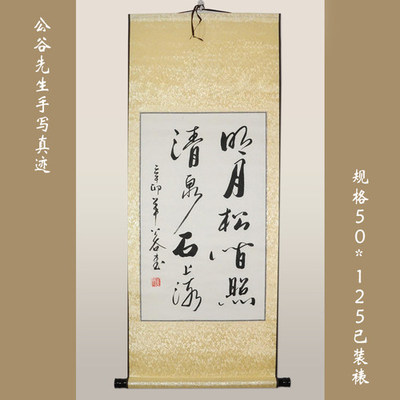 公谷先生手写真迹
明月松间照
清泉石上流
辛卯年公谷书
规格50*125已装裱